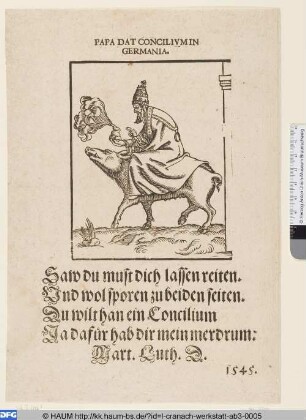 PAPA DAT CONCILIVM IN
GERMANIA.
Saw du must dich lassen reiten.
Und wol sporen zu beiden seiten.
Du wilt han ein Concilium
Ja dafür hab dir mein merdrum:
Mart. Luth. D.
1545.
DFG
© HAUM http://kk.haum-bs.de/?id=l-cranach-werkstatt-ab3-0005